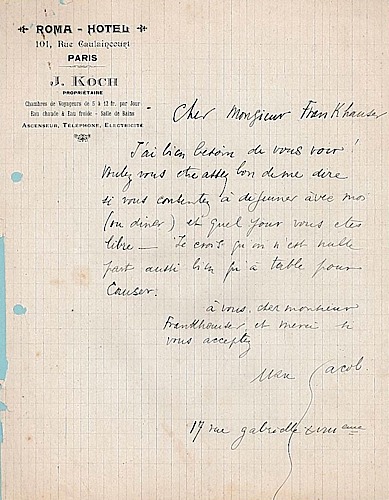 ROMA - HOTEL
101, Rue Caulaincourt
PARIS
J. KOCH
PROPRIÉTAIRE
Chambres de Voyageurs de 5 à 12 fr. par Jour
Eau chaude & Eau froide - Salle de Bains
ASCENSEUR, TÉLÉPHONE, ELECTRICITÉ
Cher Monsieur Frankhauser
J'ai bien besoin de vous voir !
Voulez vous etre assez bon de me dire
si vous consentez à dejeuner avec moi
(ou diner) et quel jour vous etes
libre — Je crois qu'on n'est nulle
part aussi bien qu'à table pour
Causer.
à vous, cher monsieur
Frankhauser, et merci si
vous acceptez
Max Jacob.
17 rue gabrielle XVIII eme